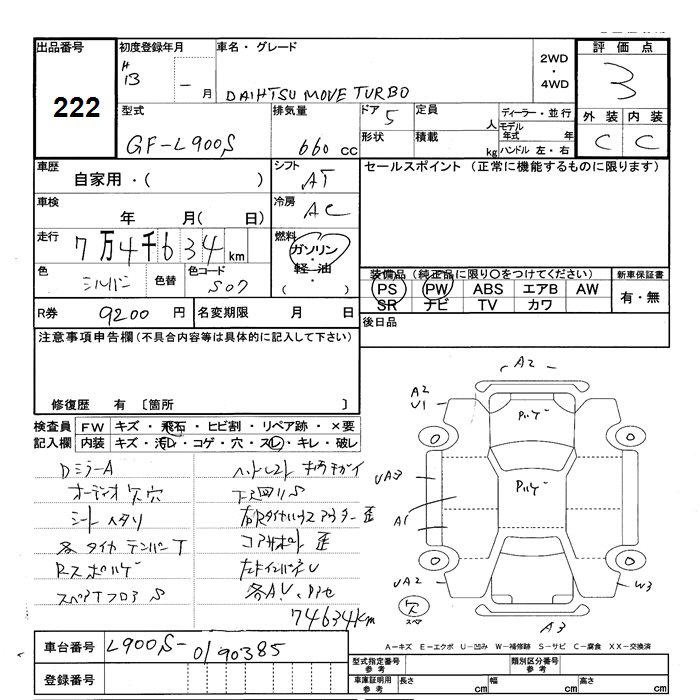 出品番号 初度登録年月 車名・グレード 2WD・4WD 評価点
222 H13 ー 月 DAIHTSU MOVE TURBO 3
型式 排気量 ドア 定員 ディーラー・並行 外装 内装
GF-L900S 660 cc 5 人 モデル年式 年 C C
形状 積載 kg ハンドル 左・右
車歴 シフト セールスポイント (正常に機能するものに限ります)
自家用・( ) AT
車検 冷房
年 月( 日) AC
走行 燃料
7万4千634 km ガソリン・軽油・( )
色 色替 色コード 装備品 (純正品に限り○をつけてください) 新車保証書
シルバー S07 PS PW ABS エアB AW 有・無
SR ナビ TV カワ
R券 9200 円 名変期限 月 日 後日品
注意事項申告欄(不具合内容等は具体的に記入して下さい)
修復歴 有 〔箇所 〕
検査員 FW キズ・飛石・ヒビ割・リペア跡・×要
記入欄 内装 キズ・汚レ・コゲ・穴・スレ・キレ・破レ
DミラーA
オーディオ欠穴 下回りS
シートヘタリ
各タイヤ テンパーT コアサポート歪
スペアTフロアS
74634km
A2
A2
U1
UA3
A1
UA2
W3
A3
欠
スペア
A-キズ E-エクボ U-凹み W-補修跡 S-サビ C-腐食 XX-交換済
車台番号 L900S-0190385
登録番号
型式指定番号 参考 類別区分番号 参考
車庫証明用 参考 長さ cm 幅 cm 高さ cm